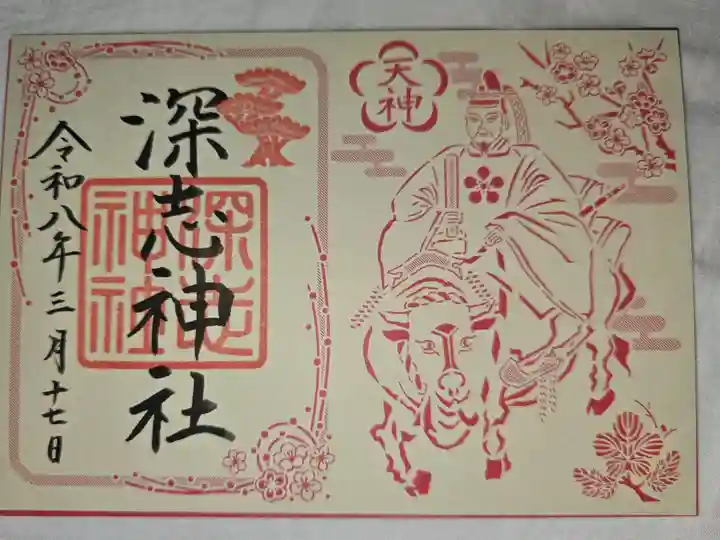 天神
深志神社
深志神社
令和八年三月十七日